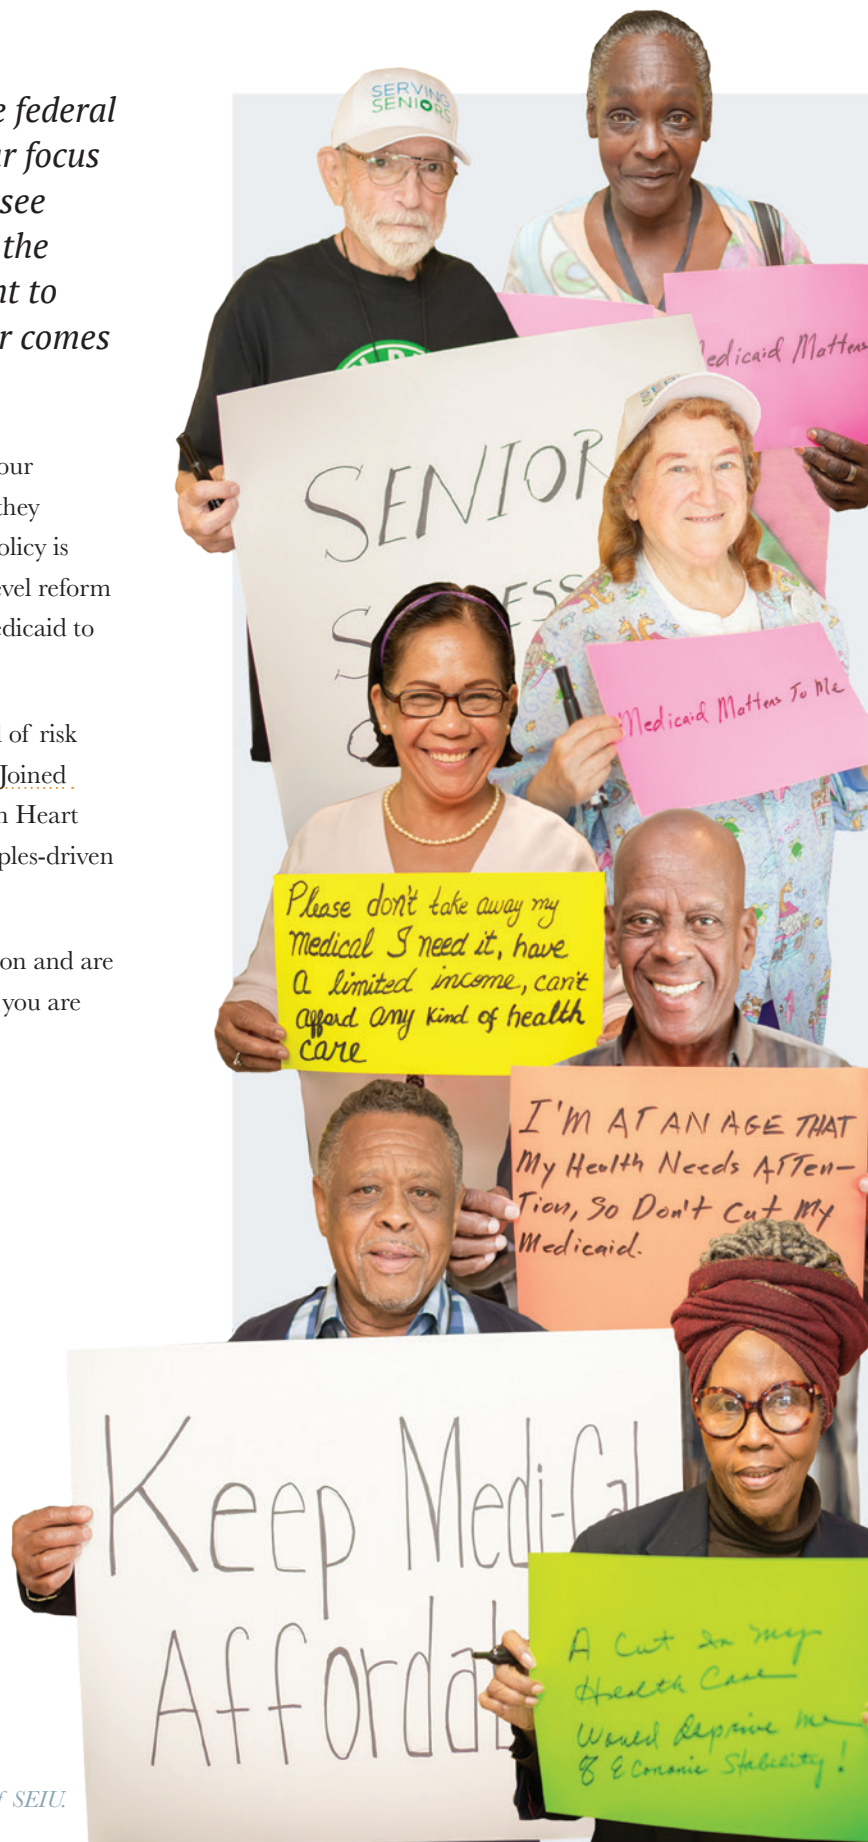 e federal
r focus
see
the
nt to
r comes
our
they
olicy is
evel reform
edicaid to
l of risk
Joined
n Heart
ples-driven
on and are
you are
f SEIU.
SERVING
SENIORS
Medicaid Matters
SENIOR
Medicaid Matters To Me
Please don't take away my
medical I need it, have
a limited income, can't
afford any kind of health
care
I'M AT AN AGE THAT
My Health Needs ATTen-
Tion, So Don't Cut My
Medicaid.
Keep Medi-Cal
Afforda
A Cut In my
Health Care
Would Deprive me
of Economic Stability!